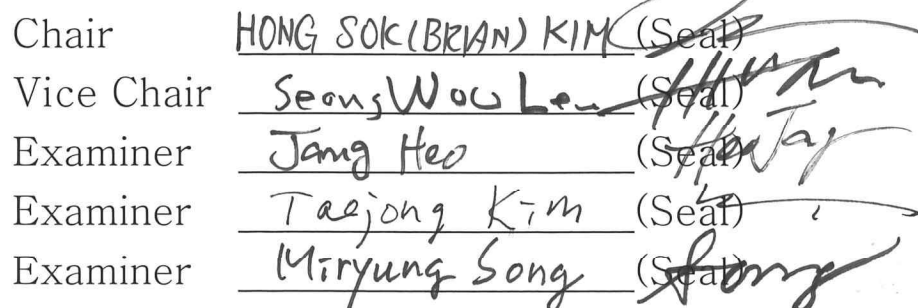 Chair HONG SOK(BRIAN) KIM (Seal)
Vice Chair Seong Woo Lee (Seal)
Examiner Jang Heo (Seal)
Examiner Taejong Kim (Seal)
Examiner Miryung Song (Seal)